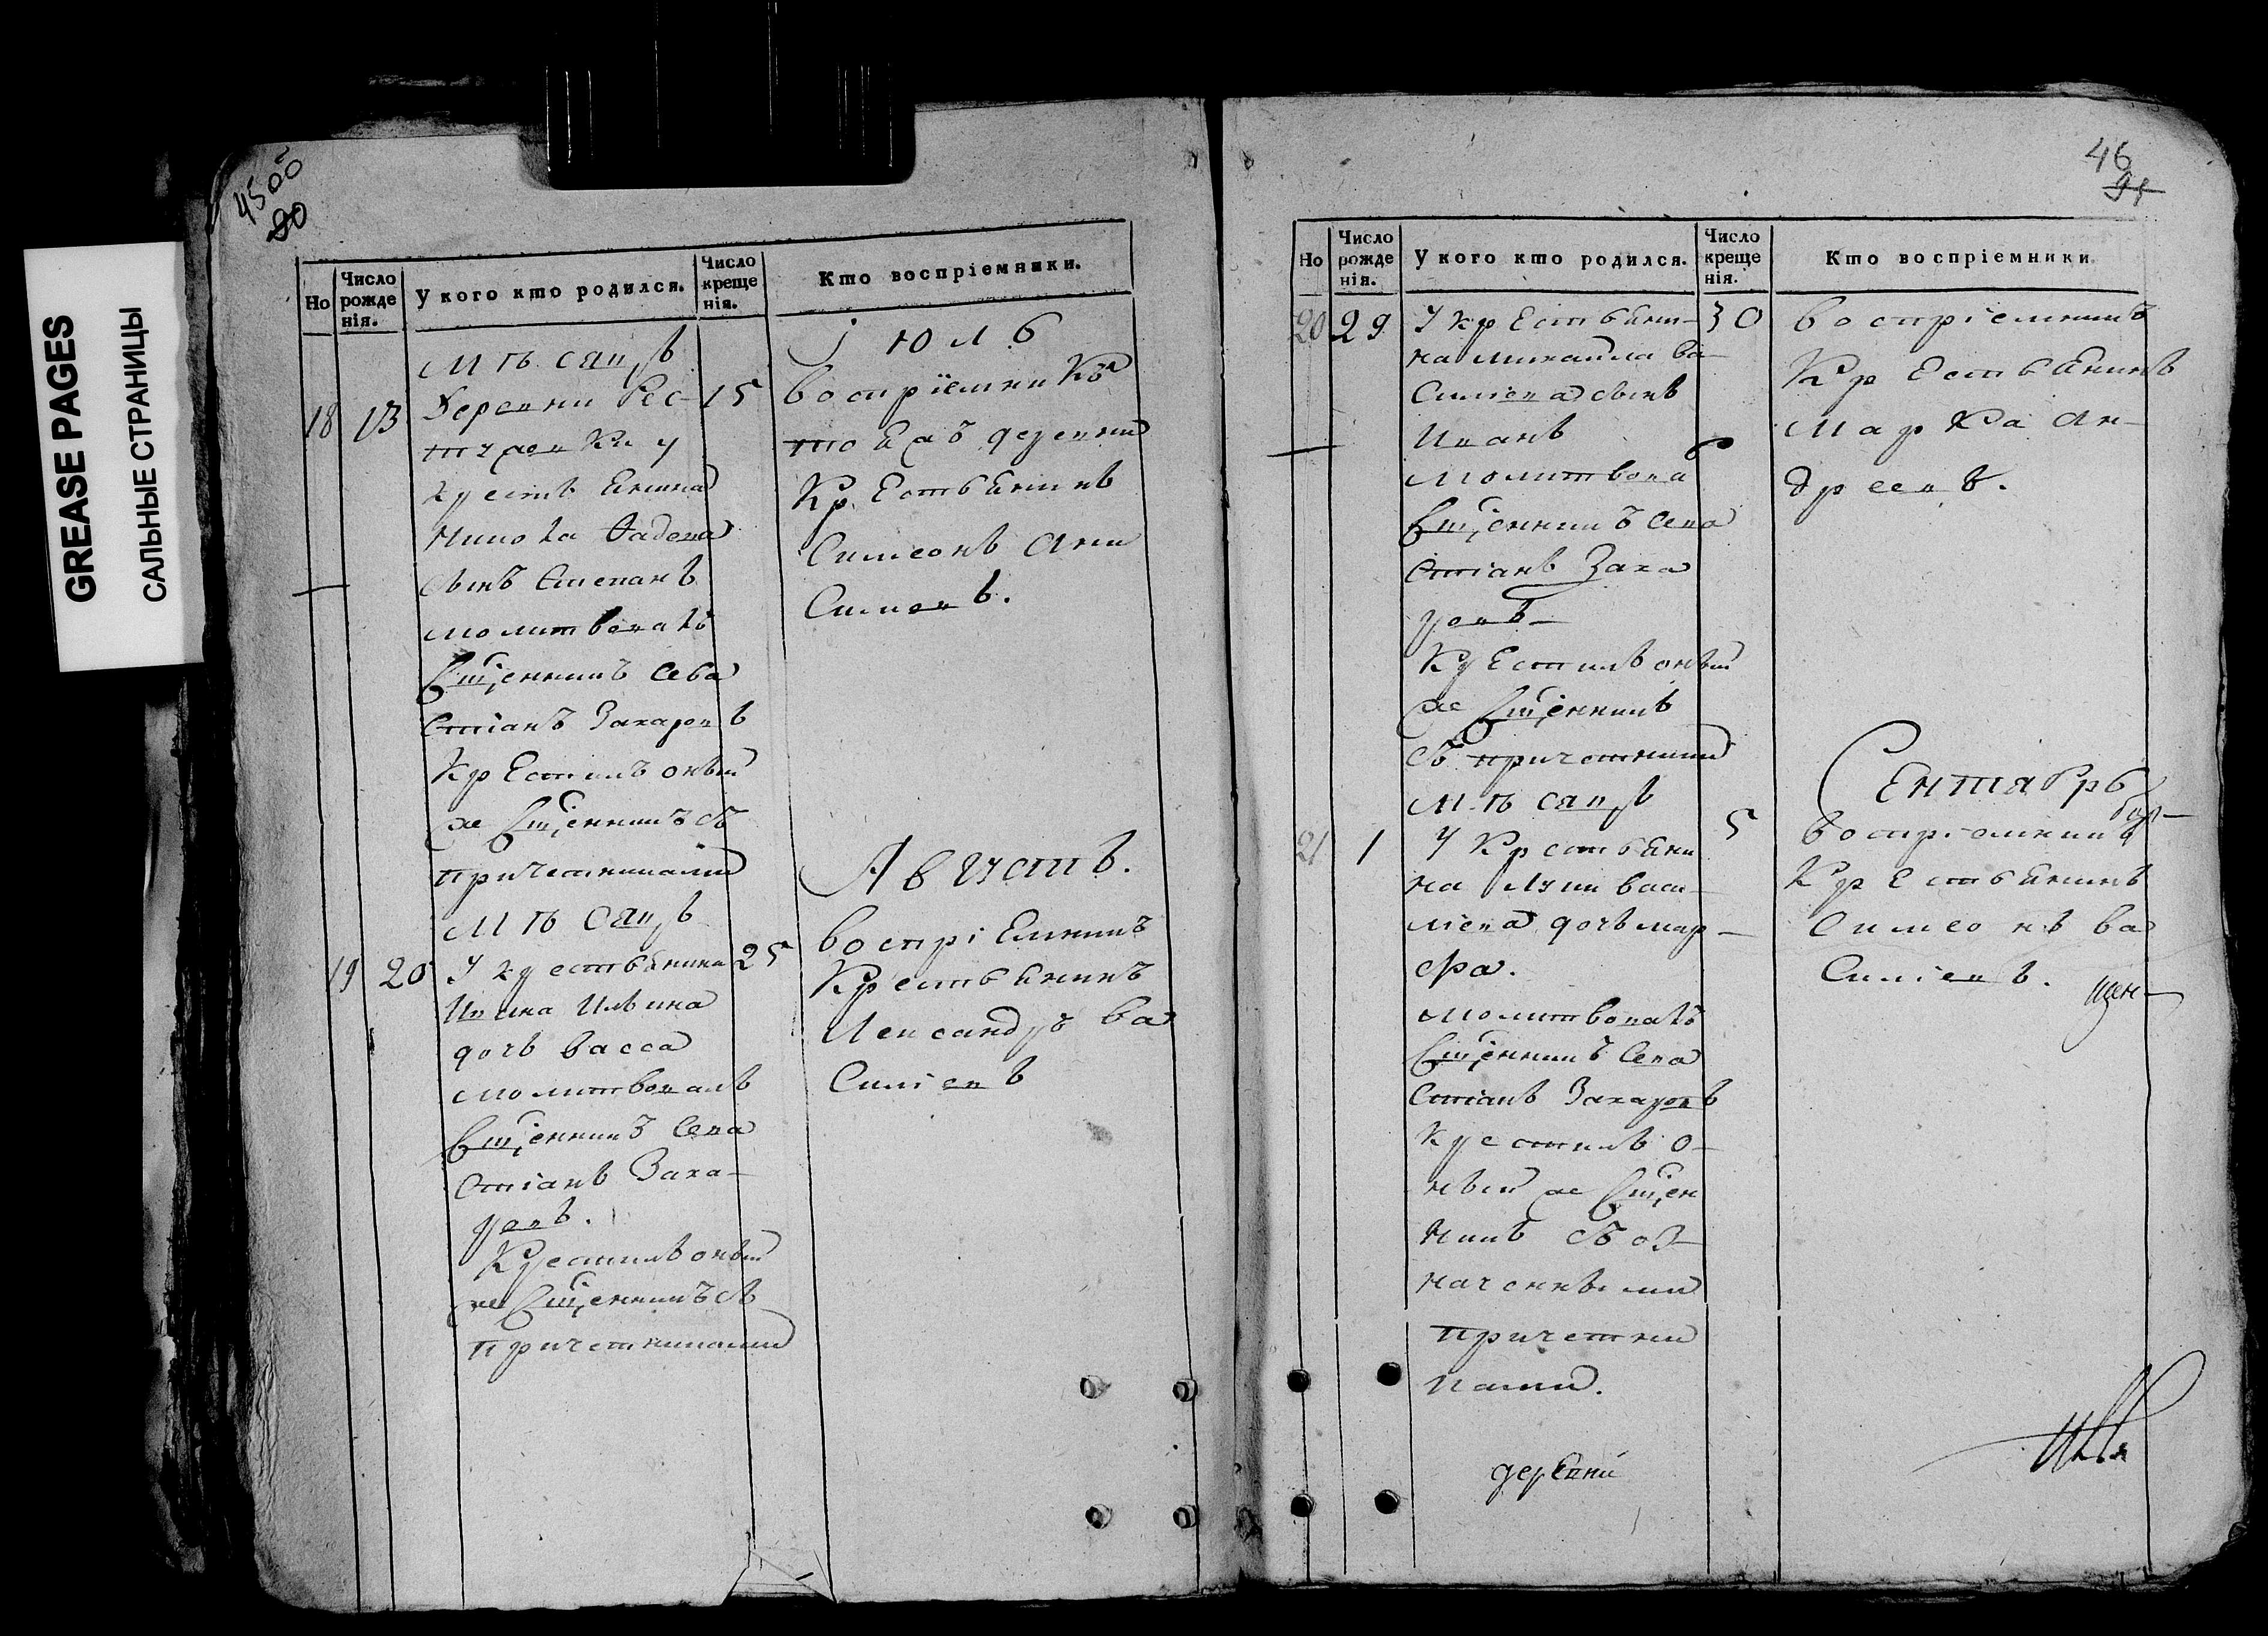 GREASE PAGES
САЛЬНЫЕ СТРАНИЦЫ
45 об
80
Но
Число рожде нія.
У кого кто родился.
Число креще нія.
Кто воспріемники.
Мѣсяцъ
Іюль
18 13
Деревни
15
у
крестьянина
сынъ Степанъ
молитвовалъ
Сщ҃енникъ Сева
стіанъ Захаровъ
Крестилъ оный
же Сщ҃енникъ съ
причетниками
воспріемникъ
тоежъ деревни
Крестьянинъ
Симеонъ Ани
симовъ.
Мѣсяцъ
Августъ.
19 20
У крестьянина
25
Ивана Ильина
дочь Васса
молитвовалъ
Сщ҃енникъ Сева
стіанъ Заха-
ровъ.
Крестилъ оный
же Сщ҃енникъ съ
причетниками
воспріемникъ
Крестьянинъ
Лександръ Ва
силіевъ
46
91
Но
Число рожде нія.
У кого кто родился.
Число креще нія.
Кто воспріемники
20 29
У крестьяни-
30
на Михайла Ва-
силіева сынъ
Иванъ
молитвова
Сщ҃енникъ Сева
стіанъ Заха
ровъ
Крестилъ оный
же Сщ҃енникъ
съ причетники
воспріемникъ
Крестьянинъ
Марка Ан-
дреевъ.
Мѣсяцъ
Сентябрь
21 1
У крстьяни
5
на Луки Васи-
ліева дочь Мар-
фа.
молитвовалъ
Сщ҃енникъ Сева
стіанъ Захаровъ
крестилъ о-
ный же Сщ҃ен
никъ съ оз-
наченными
причетни
ками.
воспріемникъ
Крестьянинъ
Симеонъ Ва
силіевъ.
деревни